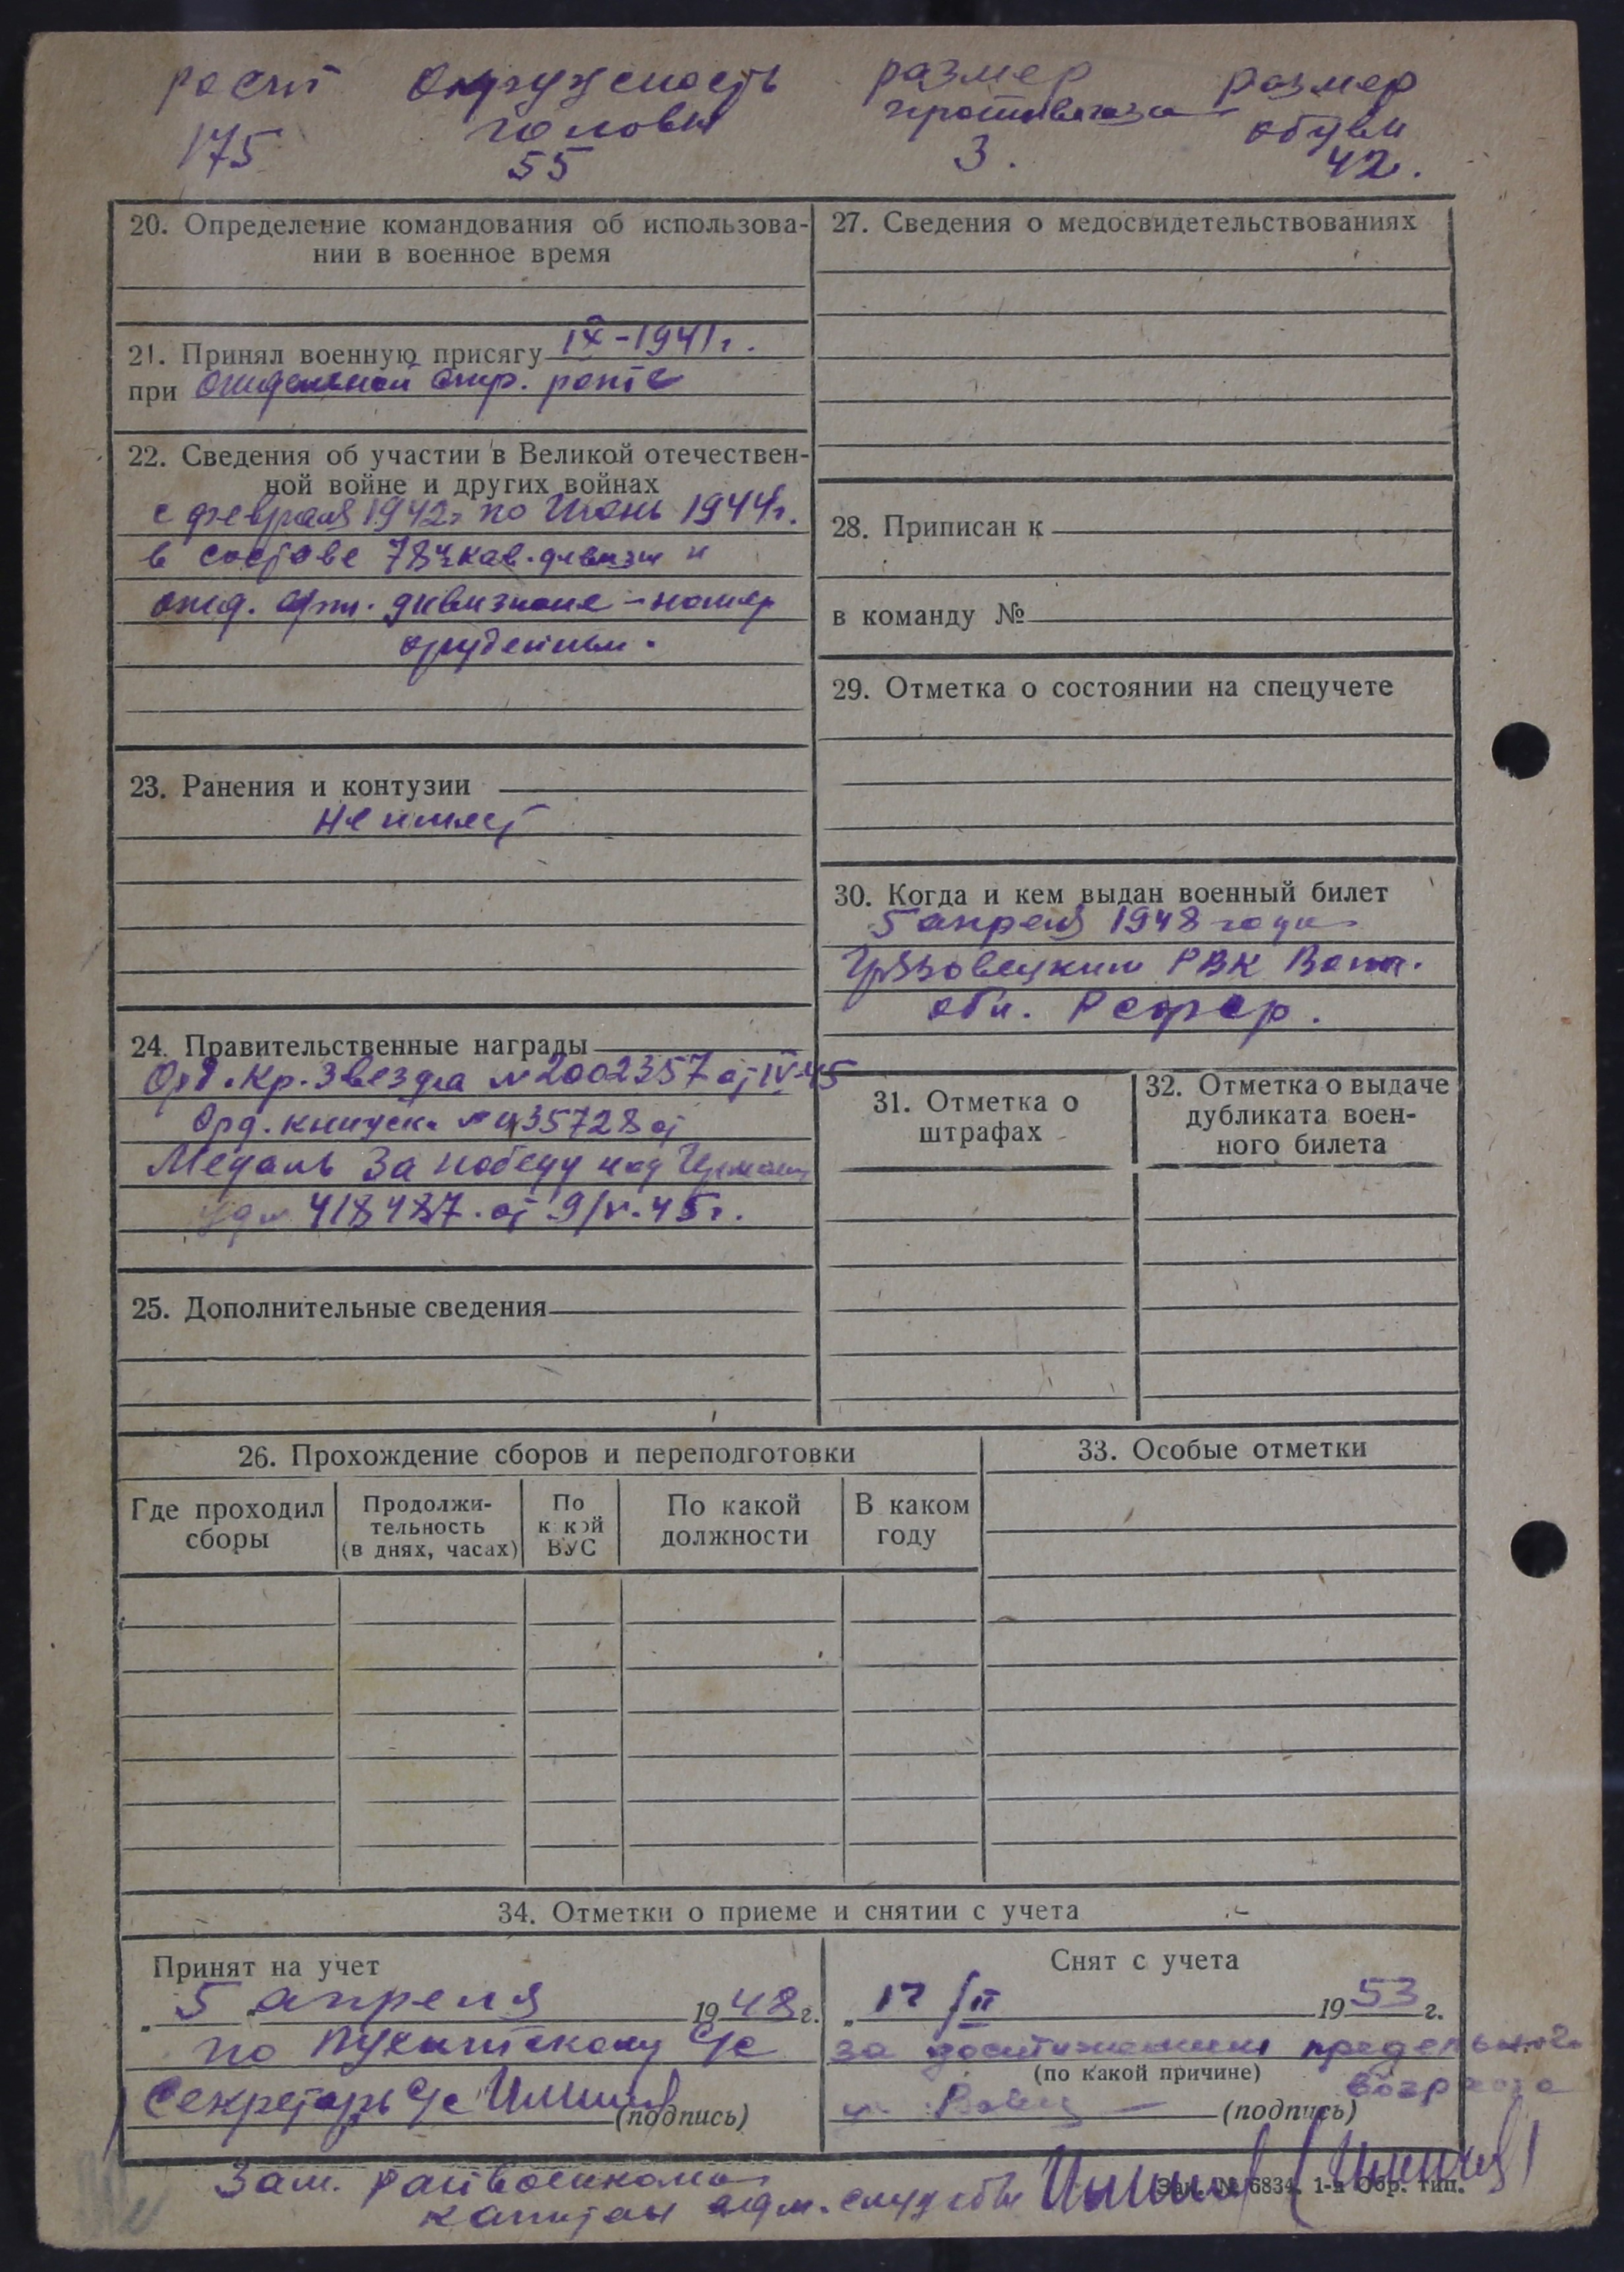 рост окружность размер размер
головы противогаза обуви
175 55 3. 42.
20. Определение командования об использова-
нии в военное время
21. Принял военную присягу IX-1941г.
при отдельной стр. роте
22. Сведения об участии в Великой отечествен-
ной войне и других войнах
с февраля 1942г по Июнь 1944г.
в составе кав. дивизии
отд. арт. дивизионе – номер
орудейный.
23. Ранения и контузии
Не имеет
24. Правительственные награды
Орд. Кр. Звезда № 2002357 от IV-45
Орд. книжка № 435728 от
Медаль За победу над Германи
уд № 418487. от 9/V-45г.
25. Дополнительные сведения
27. Сведения о медосвидетельствованиях
28. Приписан к
в команду №
29. Отметка о состоянии на спецучете
30. Когда и кем выдан военный билет
5 апреля 1948 года
Грязовецким РВК Волог.
обл. РСФСР.
31. Отметка о
штрафах
32. Отметка о выдаче
дубликата воен-
ного билета
26. Прохождение сборов и переподготовки
Где проходил
сборы
Продолжи-
тельность
(в днях, часах)
По
какой
ВУС
По какой
должности
В каком
году
33. Особые отметки
34. Отметки о приеме и снятии с учета
Принят на учет
„5" апреля 1948г.
по с/с
Секретарь с/с
(подпись)
Снят с учета
„17 /II 1953 г.
за достижением предельного
(по какой причине) возраста
(подпись)
Зам. райвоенкома
капитан адм. службы
Зак. № 6834. 1-я Обр. тип.